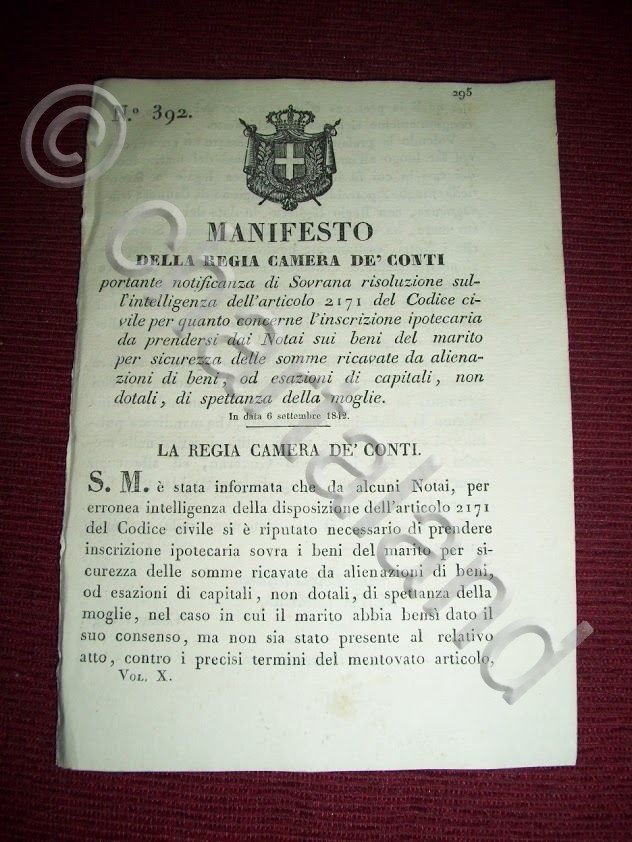 295
N.º 392.
MANIFESTO
DELLA REGIA CAMERA DE' CONTI
portante notificanza di Sovrana risoluzione sul-
l'intelligenza dell'articolo 2171 del Codice ci-
vile per quanto concerne l'inscrizione ipotecaria
da prendersi dai Notai sui beni del marito
per sicurezza delle somme ricavate da aliena-
zioni di beni, od esazioni di capitali, non
dotali, di spettanza della moglie.
In data 6 settembre 1842.
LA REGIA CAMERA DE' CONTI.
S. M. è stata informata che da alcuni Notai, per
erronea intelligenza della disposizione dell'articolo 2171
del Codice civile si è riputato necessario di prendere
inscrizione ipotecaria sovra i beni del marito per si-
curezza delle somme ricavate da alienazioni di beni,
od esazioni di capitali, non dotali, di spettanza della
moglie, nel caso in cui il marito abbia bensì dato il
suo consenso, ma non sia stato presente al relativo
atto, contro i precisi termini del mentovato articolo,
VOL. X.
© Chartaland